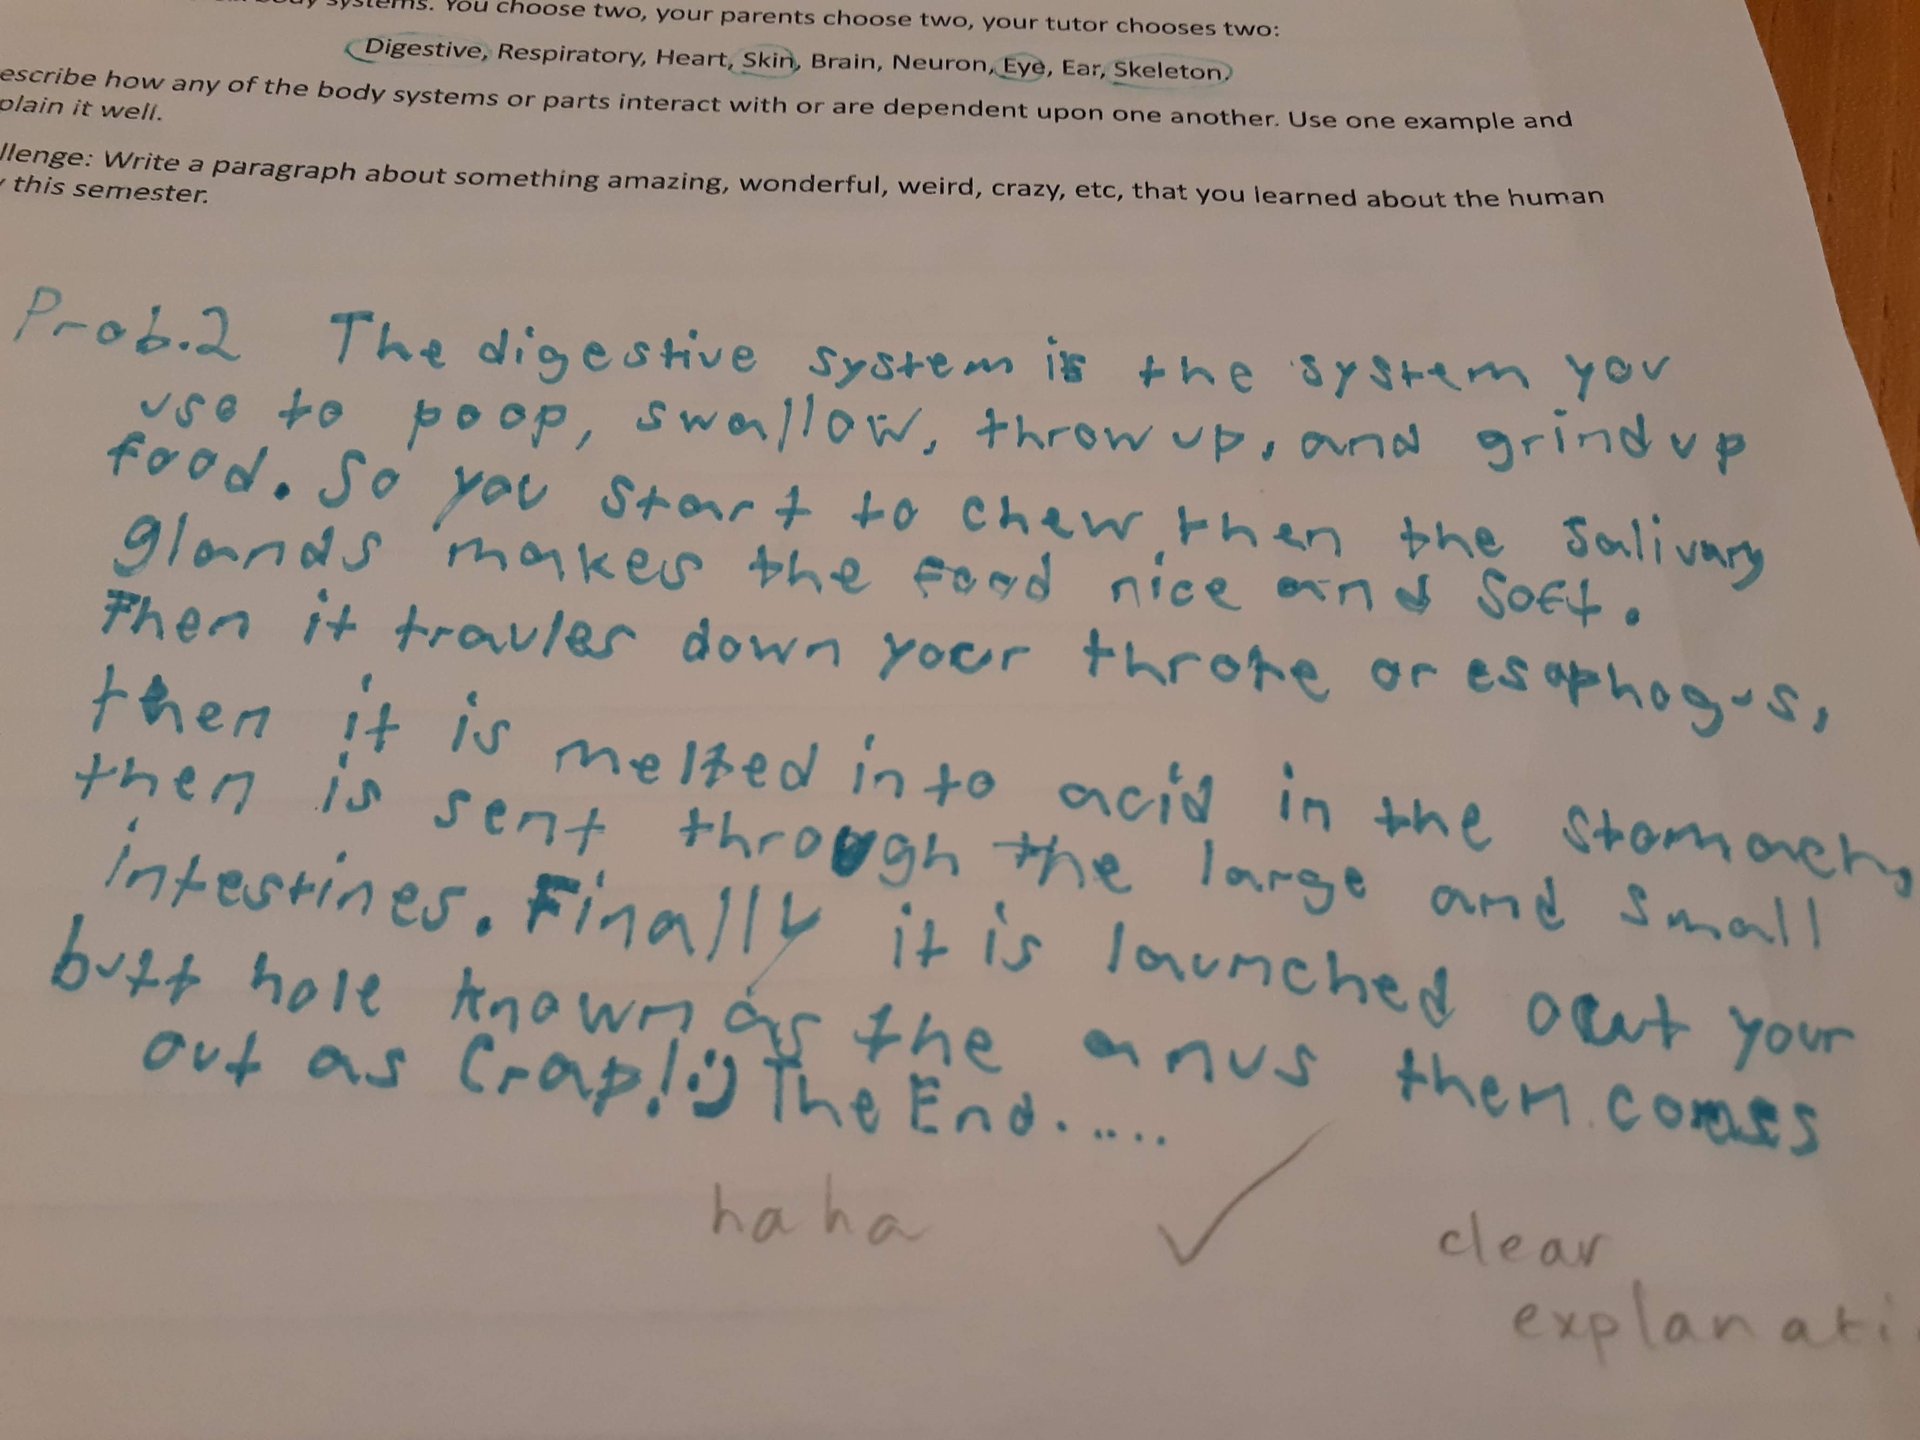 body systems. You choose two, your parents choose two, your tutor chooses two:
Digestive, Respiratory, Heart, Skin, Brain, Neuron, Eye, Ear, Skeleton.
escribe how any of the body systems or parts interact with or are dependent upon one another. Use one example and
plain it well.
llenge: Write a paragraph about something amazing, wonderful, weird, crazy, etc, that you learned about the human
this semester.
Prob.2 The digestive system is the system you
use to poop, swallow, throw up, and grind up
food. So you start to chew, then the Salivary
glands makes the food nice and Soft.
Then it travles down your throte or esaphogus,
then it is melted into acid in the stomach,
then is sent through the large and small
intestines. Finally it is launched out your
butt hole known as the anus then comes
out as Crap! :) The End......
haha ✓ clear
explanati